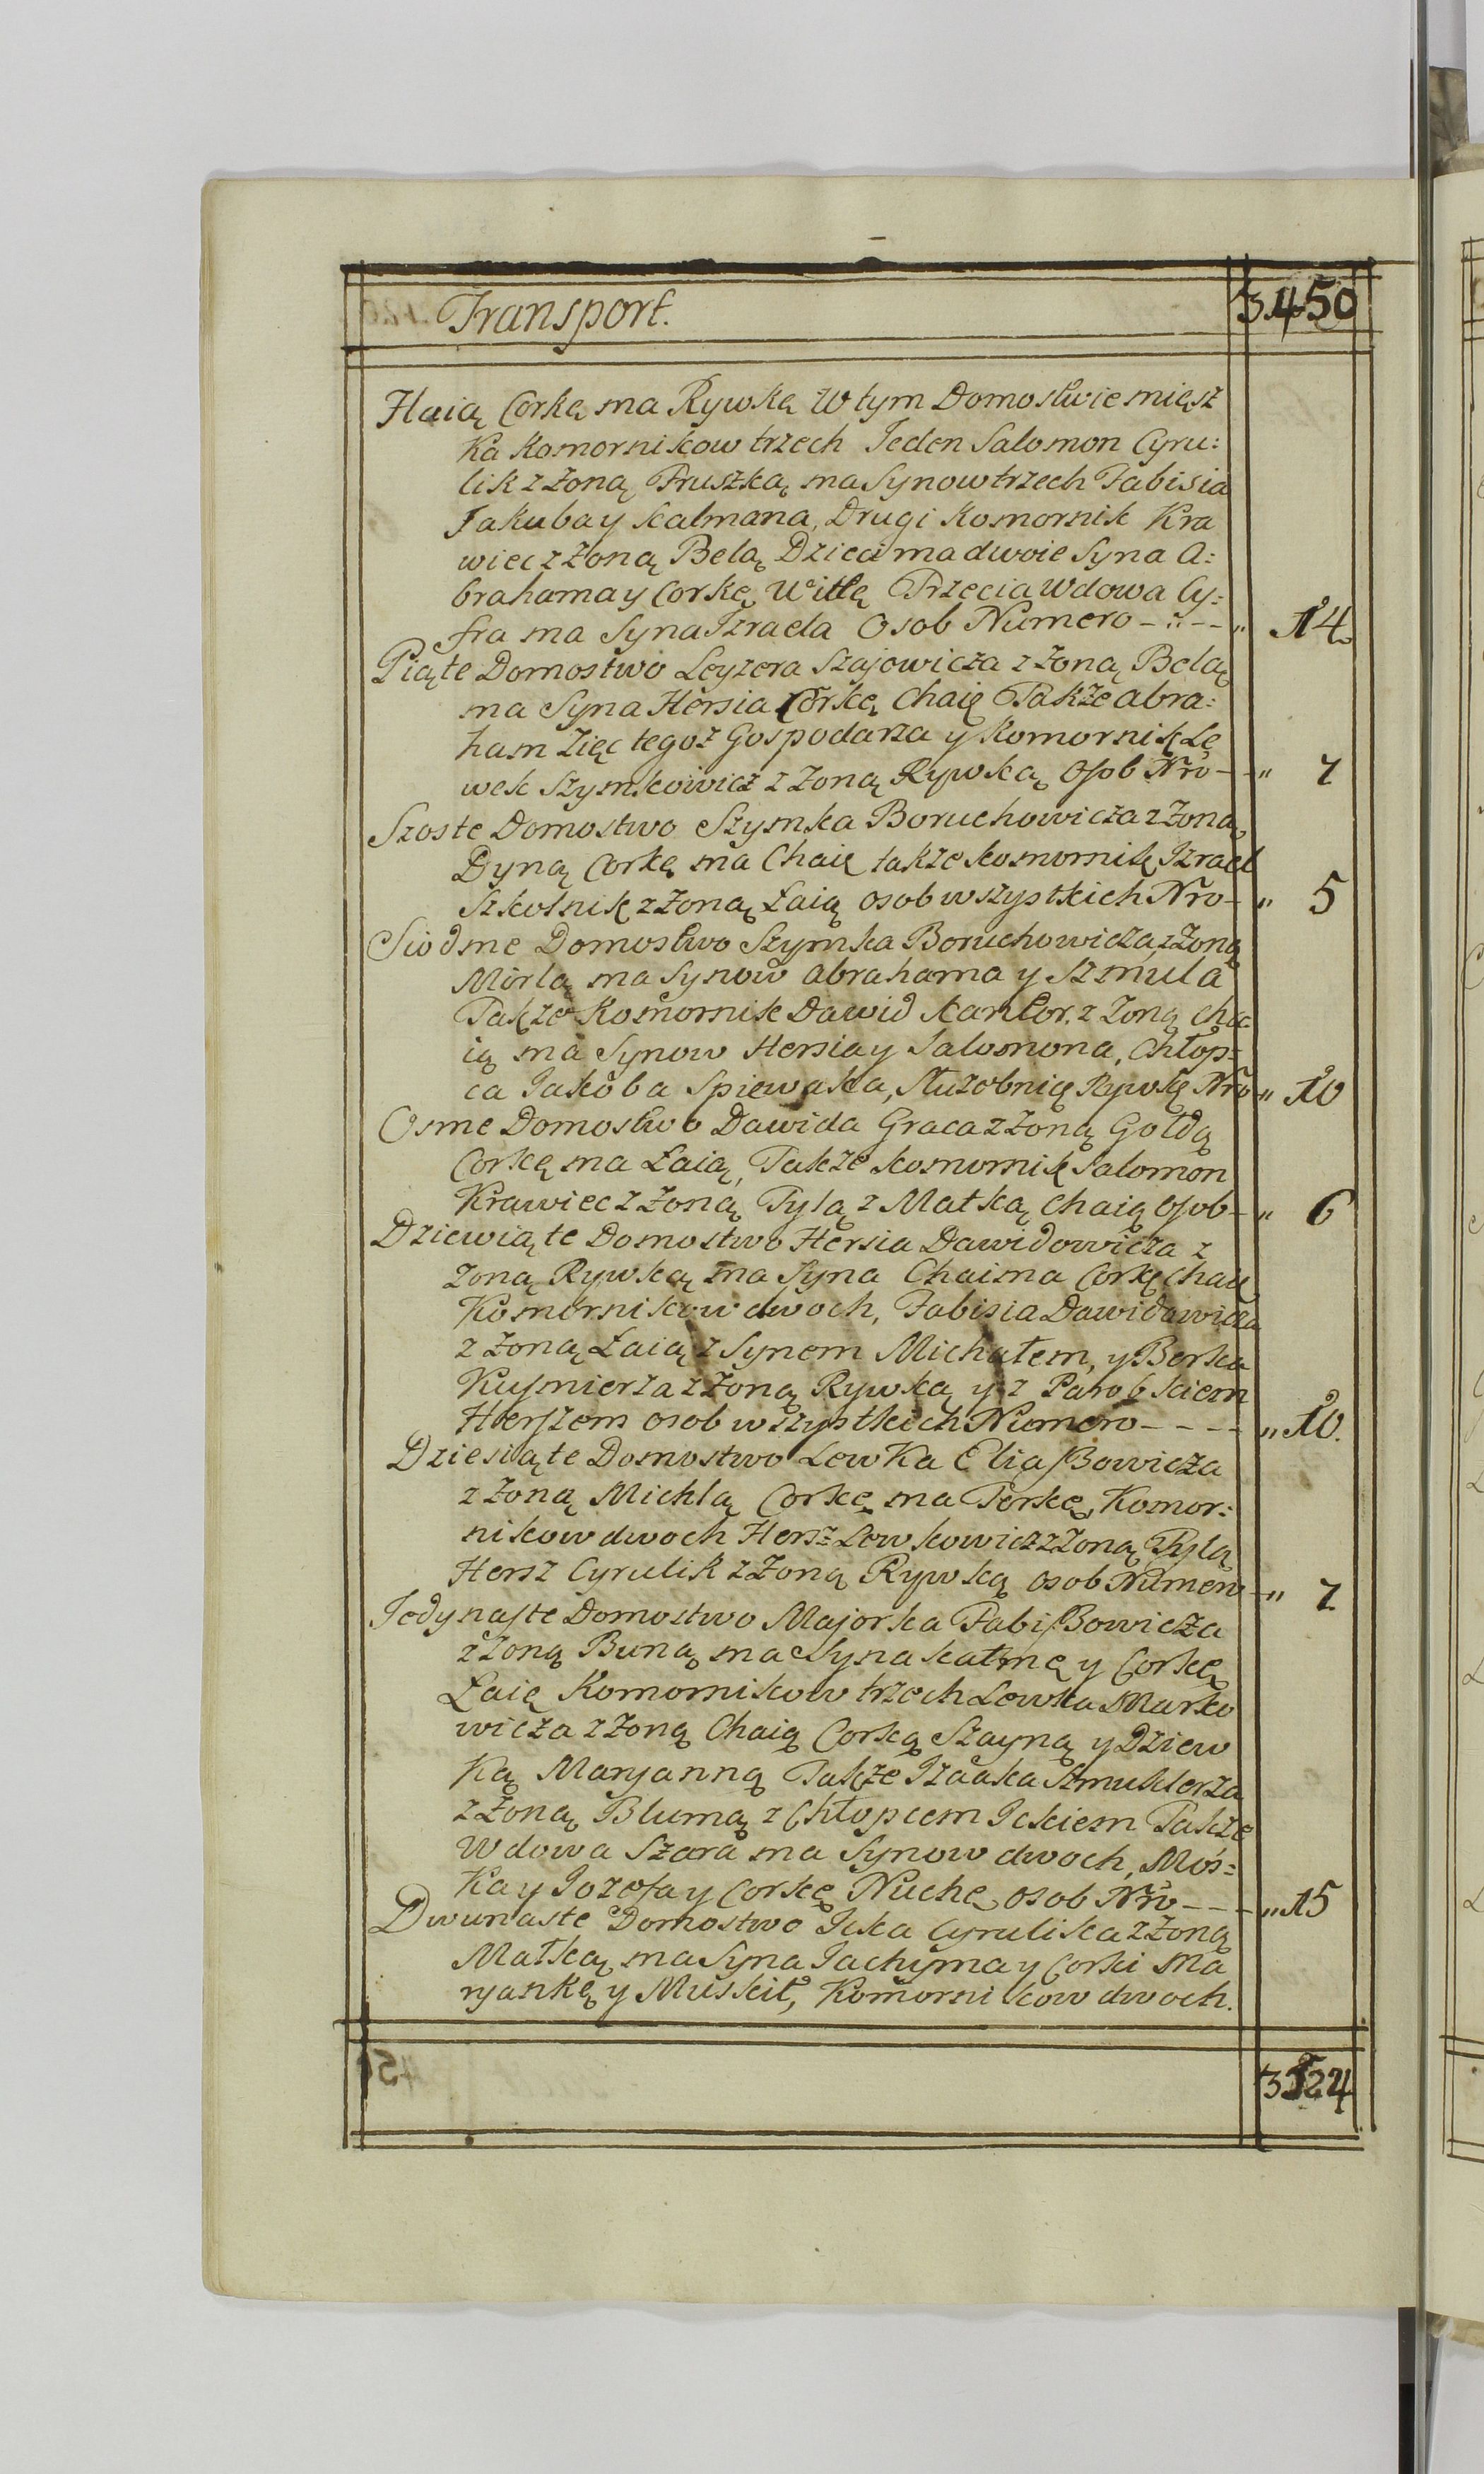 Transport. 3450
Haią Corkę ma Rywkę W tym Domostwie miesz
ka Komornikow trzech Jeden Salomon Cyru:
lik z Zoną Fruszką ma Synow trzech Fabisia
Jakuba y Kalmana, Drugi Komornik Kra
wiec z Zoną Belą Dzieci ma dwoie Syna A:
brahama y Corkę Witlę Trzecia Wdowa Cy:
fra ma Syna Izraela Osob Numero - - - „ 14
Piąte Domostwo Leyzera Szajowicza z Zoną Belą
ma Syna Hersia Corkę Chaię Także Abra:
ham Zięc tegoż Gospodarza y Komornik Le
wek Szymkowicz z Zoną Rywką Osob Nro - „ 7
Szoste Domostwo Szymka Boruchowicza z Zoną
Dyną Corkę ma Chaię także Komornik Izrael
Szkolnik z Zoną Łaią osob wszystkich Nro - „ 5
Siodme Domostwo Szymka Boruchowicza z Zoną
Mirlą ma Synow Abrahama y Szmula
Także Komornik Dawid Kantor z Zoną Cha
ią ma Synow Hersia y Salomona, Chłop:
ca Jakoba Spiewaka, Służebnię Rywkę Nro „ 10
Osme Domostwo Dawida Graca z Zoną Gołdą
Corkę ma Łaią, Także Komornik Salomon
Krawiec z Zoną Tylą z Matką Chaią Osob - „ 6
Dziewiąte Domostwo Hersia Dawidowicza z
Zoną Rywką ma Syna Chaima Corkę Chaię
Komornikow dwoch, Fabisia Dawidowicza
z Zoną Łaią z Synem Michałem, y Berka
Kusnierza z Zoną Rywką y z Parobkiem
Herszem osob wszystkich Numero - - - - „ 10.
Dziesiąte Domostwo Lewka Eliaszowicza
z Zoną Michlą Corkę ma Perkę, Komor:
nikow dwoch Hersz Lewkowicz z Zoną Tylą
Hersz Cyrulik z Zoną Rywką osob Numero - „ 7
Jedynaste Domostwo Majorka Fabiszowicza
z Zoną Buną ma Syna Kałmę y Corkę
Łaię Komornikow trzech Lewka Marko
wicza z Zoną Chaią Corką Szayną y Dziew
ką Maryanną Także Izaaka Szmuklerza
z Zoną Blumą z Chłopcem Ickiem Także
Wdowa Szara ma Synow dwoch, Mos=
ka y Jozefa y Corkę Nuchę osob Nro - - - „ 15
Dwunaste Domostwo Icka Cyrulika z Zoną
Matką ma Syna Jachyma y Corki Ma
ryankę y Muskit, Komornikow dwoch.
3524